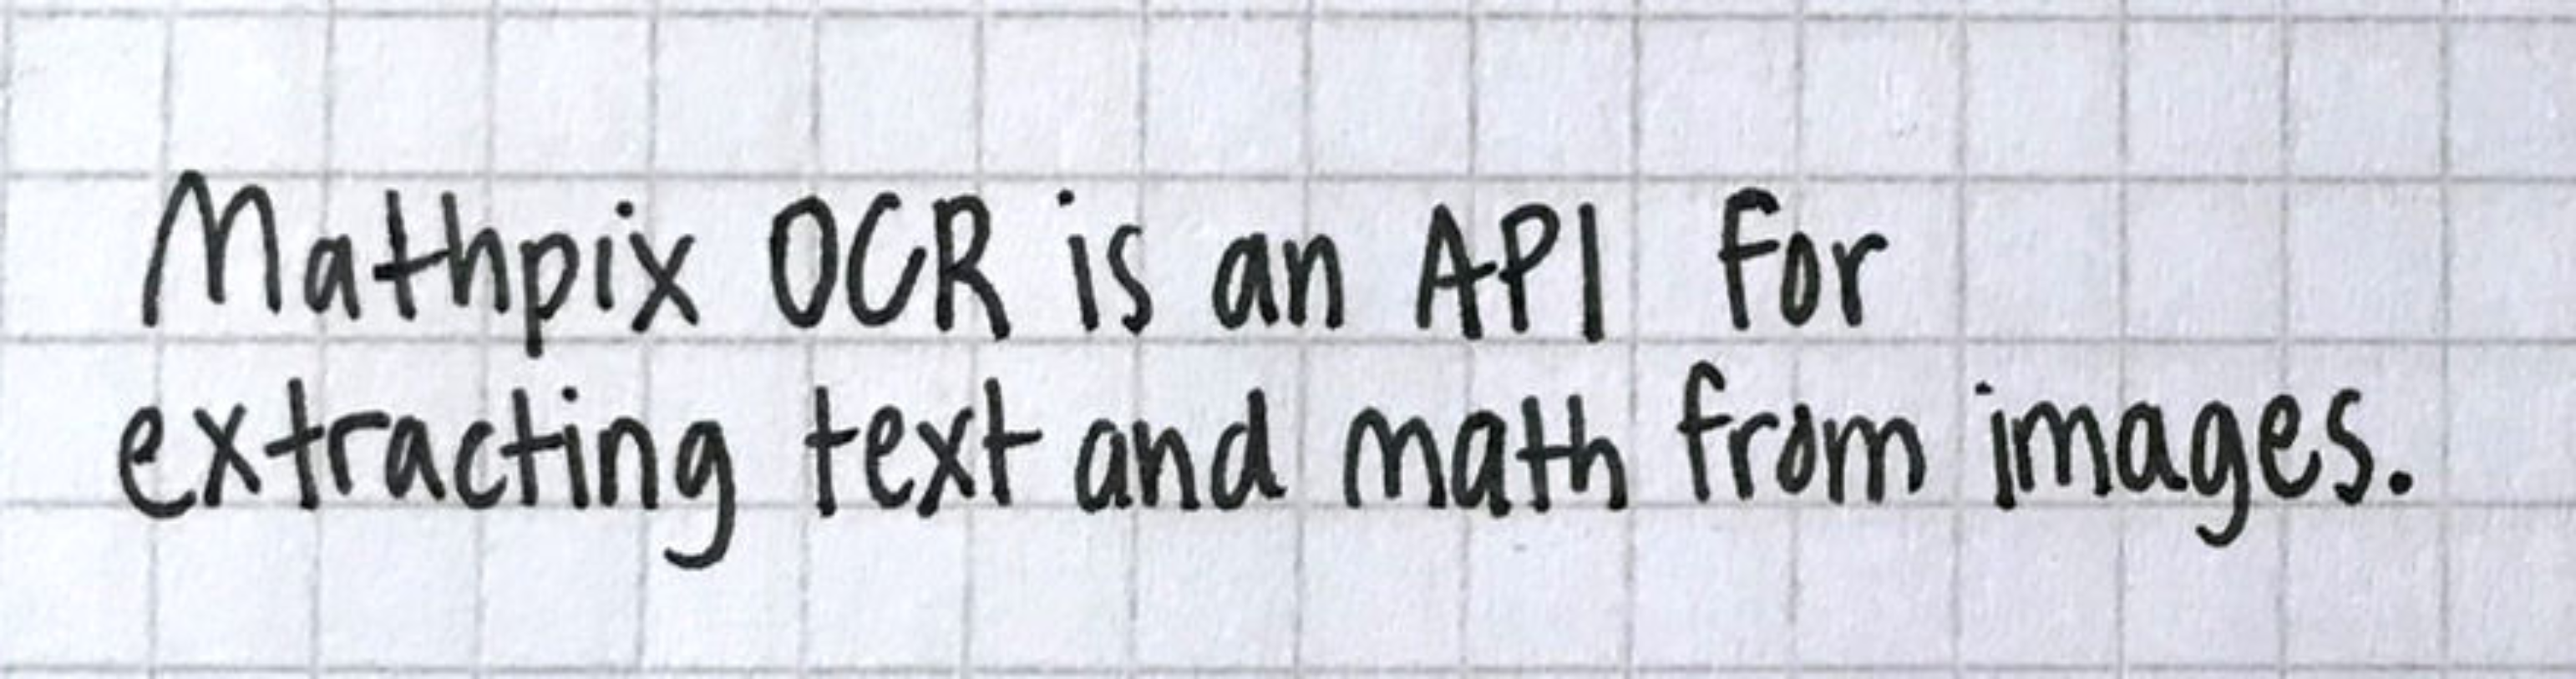 Mathpix OCR is an API for
extracting text and math from images.